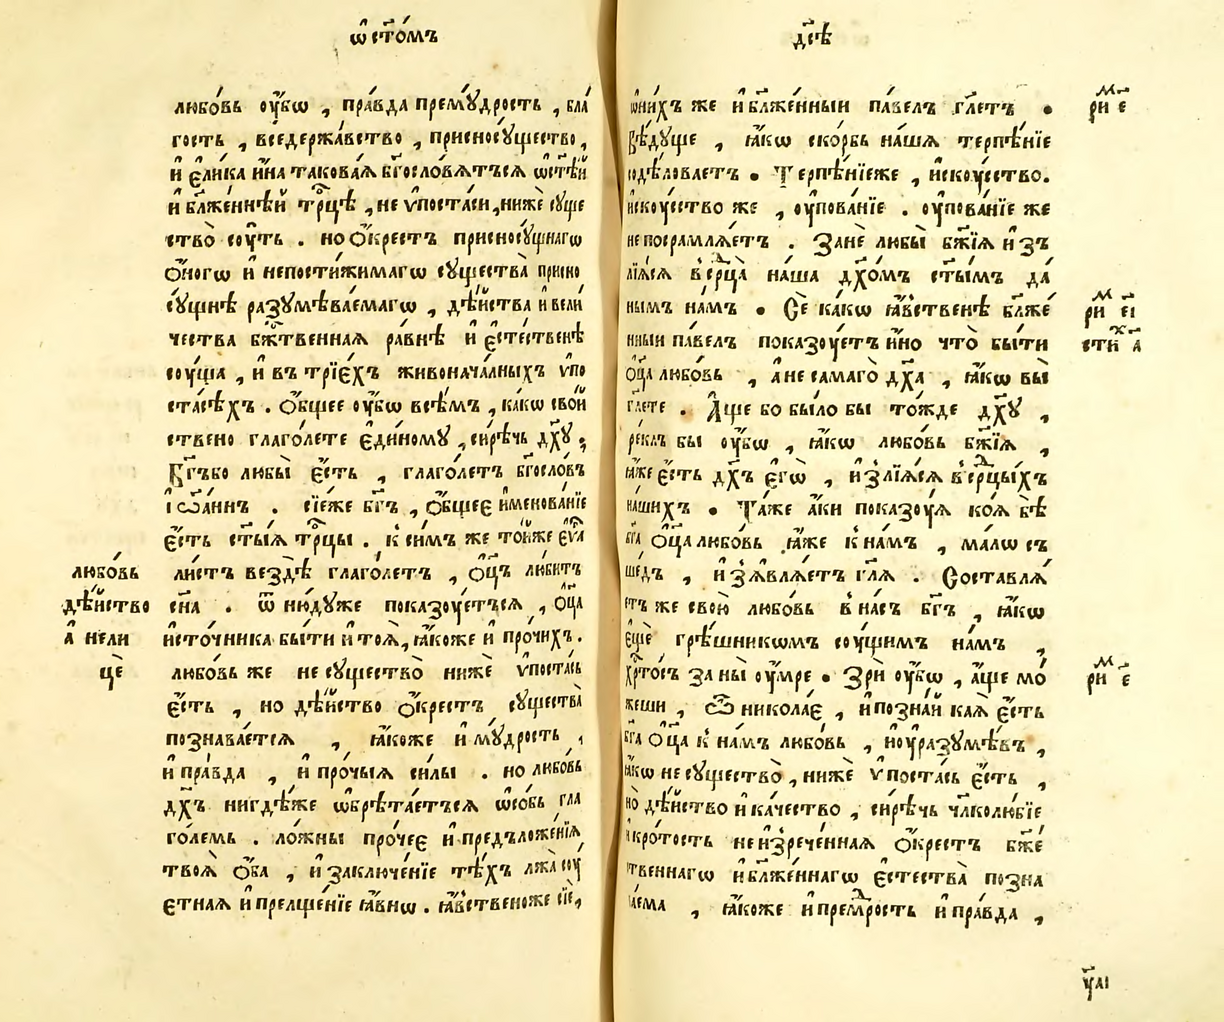 ѡ ст҃о́мъ
любо́вь ᲂу҆́бѡ , пра́вда прему́дрость , бла
гость , вседержа́вство , присносу́щество ,
и҆ є҆ли́ка и҆́на такова́ѧ бг҃осло́вѧтъсѧ ѡ҆ ст҃е́й
и҆ бл҃же́ннѣй трⷪ҇цѣ , не ѵ҆поста́си , нижѐ су́ще
ство̀ сᲂу́ть . но ѻ҆́крестъ присносу́щнагѡ
ѻ҆́ногѡ и҆ непости́жимагѡ существа̀ присно
су́щнѣ разумѣва́емагѡ , дѣ́йства и҆ вели
чества бжⷭ҇твеннаѧ ра́внѣ и҆ є҆сте́ственѣ
сᲂу́ща , и҆ въ трїе́хъ живонача́лныхъ ѵ҆по
ста́сѣхъ . ѻ҆́бщее ᲂу҆́бѡ всѣ́мъ , ка́кѡ сво́й
ствено глаго́лете є҆ди́ному , си́рѣчь дх҃у ,
Бг҃ъ бо любы̀ є҆́сть , глаго́летъ бг҃осло́въ
і҆ѡа́ннъ . сїе́же бг҃ъ , ѻ҆́бщее и҆менова́нїе
є҆́сть ст҃ы́ѧ трⷪ҇цы . к си́мъ же то́йже є҆ѵⷢ҇а
ли́стъ вездѣ̀ глаго́летъ , ѻ҆ц҃ъ лю́битъ
сн҃а . ѿ ню́дуже показᲂу́етъсѧ , ѻ҆ц҃а
и҆сто́чника бы́ти и҆ тоѧ̀ , ꙗ҆́коже и҆ про́чихъ .
любо́вь же не существо̀ нижѐ ѵ҆поста́сь
є҆́сть , но дѣ́йство ѻ҆́крестъ существа̀
познава́етсѧ , ꙗ҆́коже и҆ му́дрость ,
и҆ пра́вда , и҆ про́чыѧ си́лы . но любо́вь
дх҃ъ нигдѣ́же ѡ҆брѣта́етъсѧ ѡ҆со́бь гла
го́лемь . ло́жны про́чее и҆ предъложе́нїѧ
твоѧ̀ ѻ҆́ба , и҆ заключе́нїе тѣ́хъ лжа̀ сᲂу
етнаѧ и҆ преле́щенїе ꙗ҆́внѡ . ꙗ҆́вственоже сїѐ ,
любо́вь
дѣ́йство
а҆ не ли
цѐ
дс҃ѣ
ѡ҆ни́хъ же и҆ бл҃же́нныи па́велъ гл҃етъ .
Вѣ́дуще , ꙗ҆́кѡ ско́рбь на́шѧ терпѣ́нїе
содѣ́ловаетъ . Терпѣ́нїеже , и҆скᲂу́ство .
и҆скᲂу́ство же , ᲂу҆пова́нїе . ᲂу҆пова́нїе же
не посрамлѧ́етъ . Занѐ любы̀ бж҃їѧ и҆з̾
лїѧ́сѧ в̾ срⷣца̀ на́ша дх҃о́мъ ст҃ы́мъ да́
нымъ на́мъ . Сѐ ка́кѡ ꙗ҆́вственѣ бл҃же́
нныи па́велъ показᲂу́етъ и҆́но что̀ бы́ти
ѻ҆ц҃а любо́вь , а҆ не самаго̀ дх҃а , ꙗ҆́кѡ вы̀
гл҃ете . А҆́ще бо бы́ло бы то́жде дх҃у ,
ре́клъ бы ᲂу҆́бѡ , ꙗ҆́кѡ любо́вь бж҃їѧ ,
ꙗ҆́же є҆́сть дх҃ъ є҆гѡ̀ , и҆з̾лїѧ́сѧ в̾ срⷣцы́хъ
на́шихъ . Та́же а҆́ки показᲂу́ѧ ко́ѧ бѣ̀
бг҃а ѻ҆ц҃а любо́вь ꙗ҆́же к на́мъ , ма́лѡ съ
ше́дъ , и҆з̾ѧвлѧ́етъ гл҃ѧ . Составлѧ́
етъ же свою̀ любо́вь в на́съ бг҃ъ , ꙗ҆́кѡ
є҆щѐ грѣ́шникѡмъ сᲂу́щимъ на́мъ ,
хрⷭ҇то́съ за ны̀ ᲂу҆́мре . Зрѝ ᲂу҆́бѡ , а҆́ще мо́
жеши , ѽ никола́е , и҆ позна́й ка́ѧ є҆́сть
бг҃а ѻ҆ц҃а к на́мъ любо́вь , и҆ ᲂу҆разумѣ́въ ,
ꙗ҆́кѡ не существо̀ , нижѐ ѵ҆поста́сь є҆́сть ,
но̀ дѣ́йство и҆ ка́чество , си́рѣчь чл҃колю́бїе
и҆ кро́тость неи҆зрече́нная ѻ҆́крестъ бж҃е́
ственнагѡ и҆ бл҃же́ннагѡ є҆стества̀ позна
ва́ема , ꙗ҆́коже и҆ премⷣрость и҆ пра́вда ,
ри м҃ е҃
ри м҃ еі҃
сти х҃ а҃
ри м҃ е҃
у҃аі